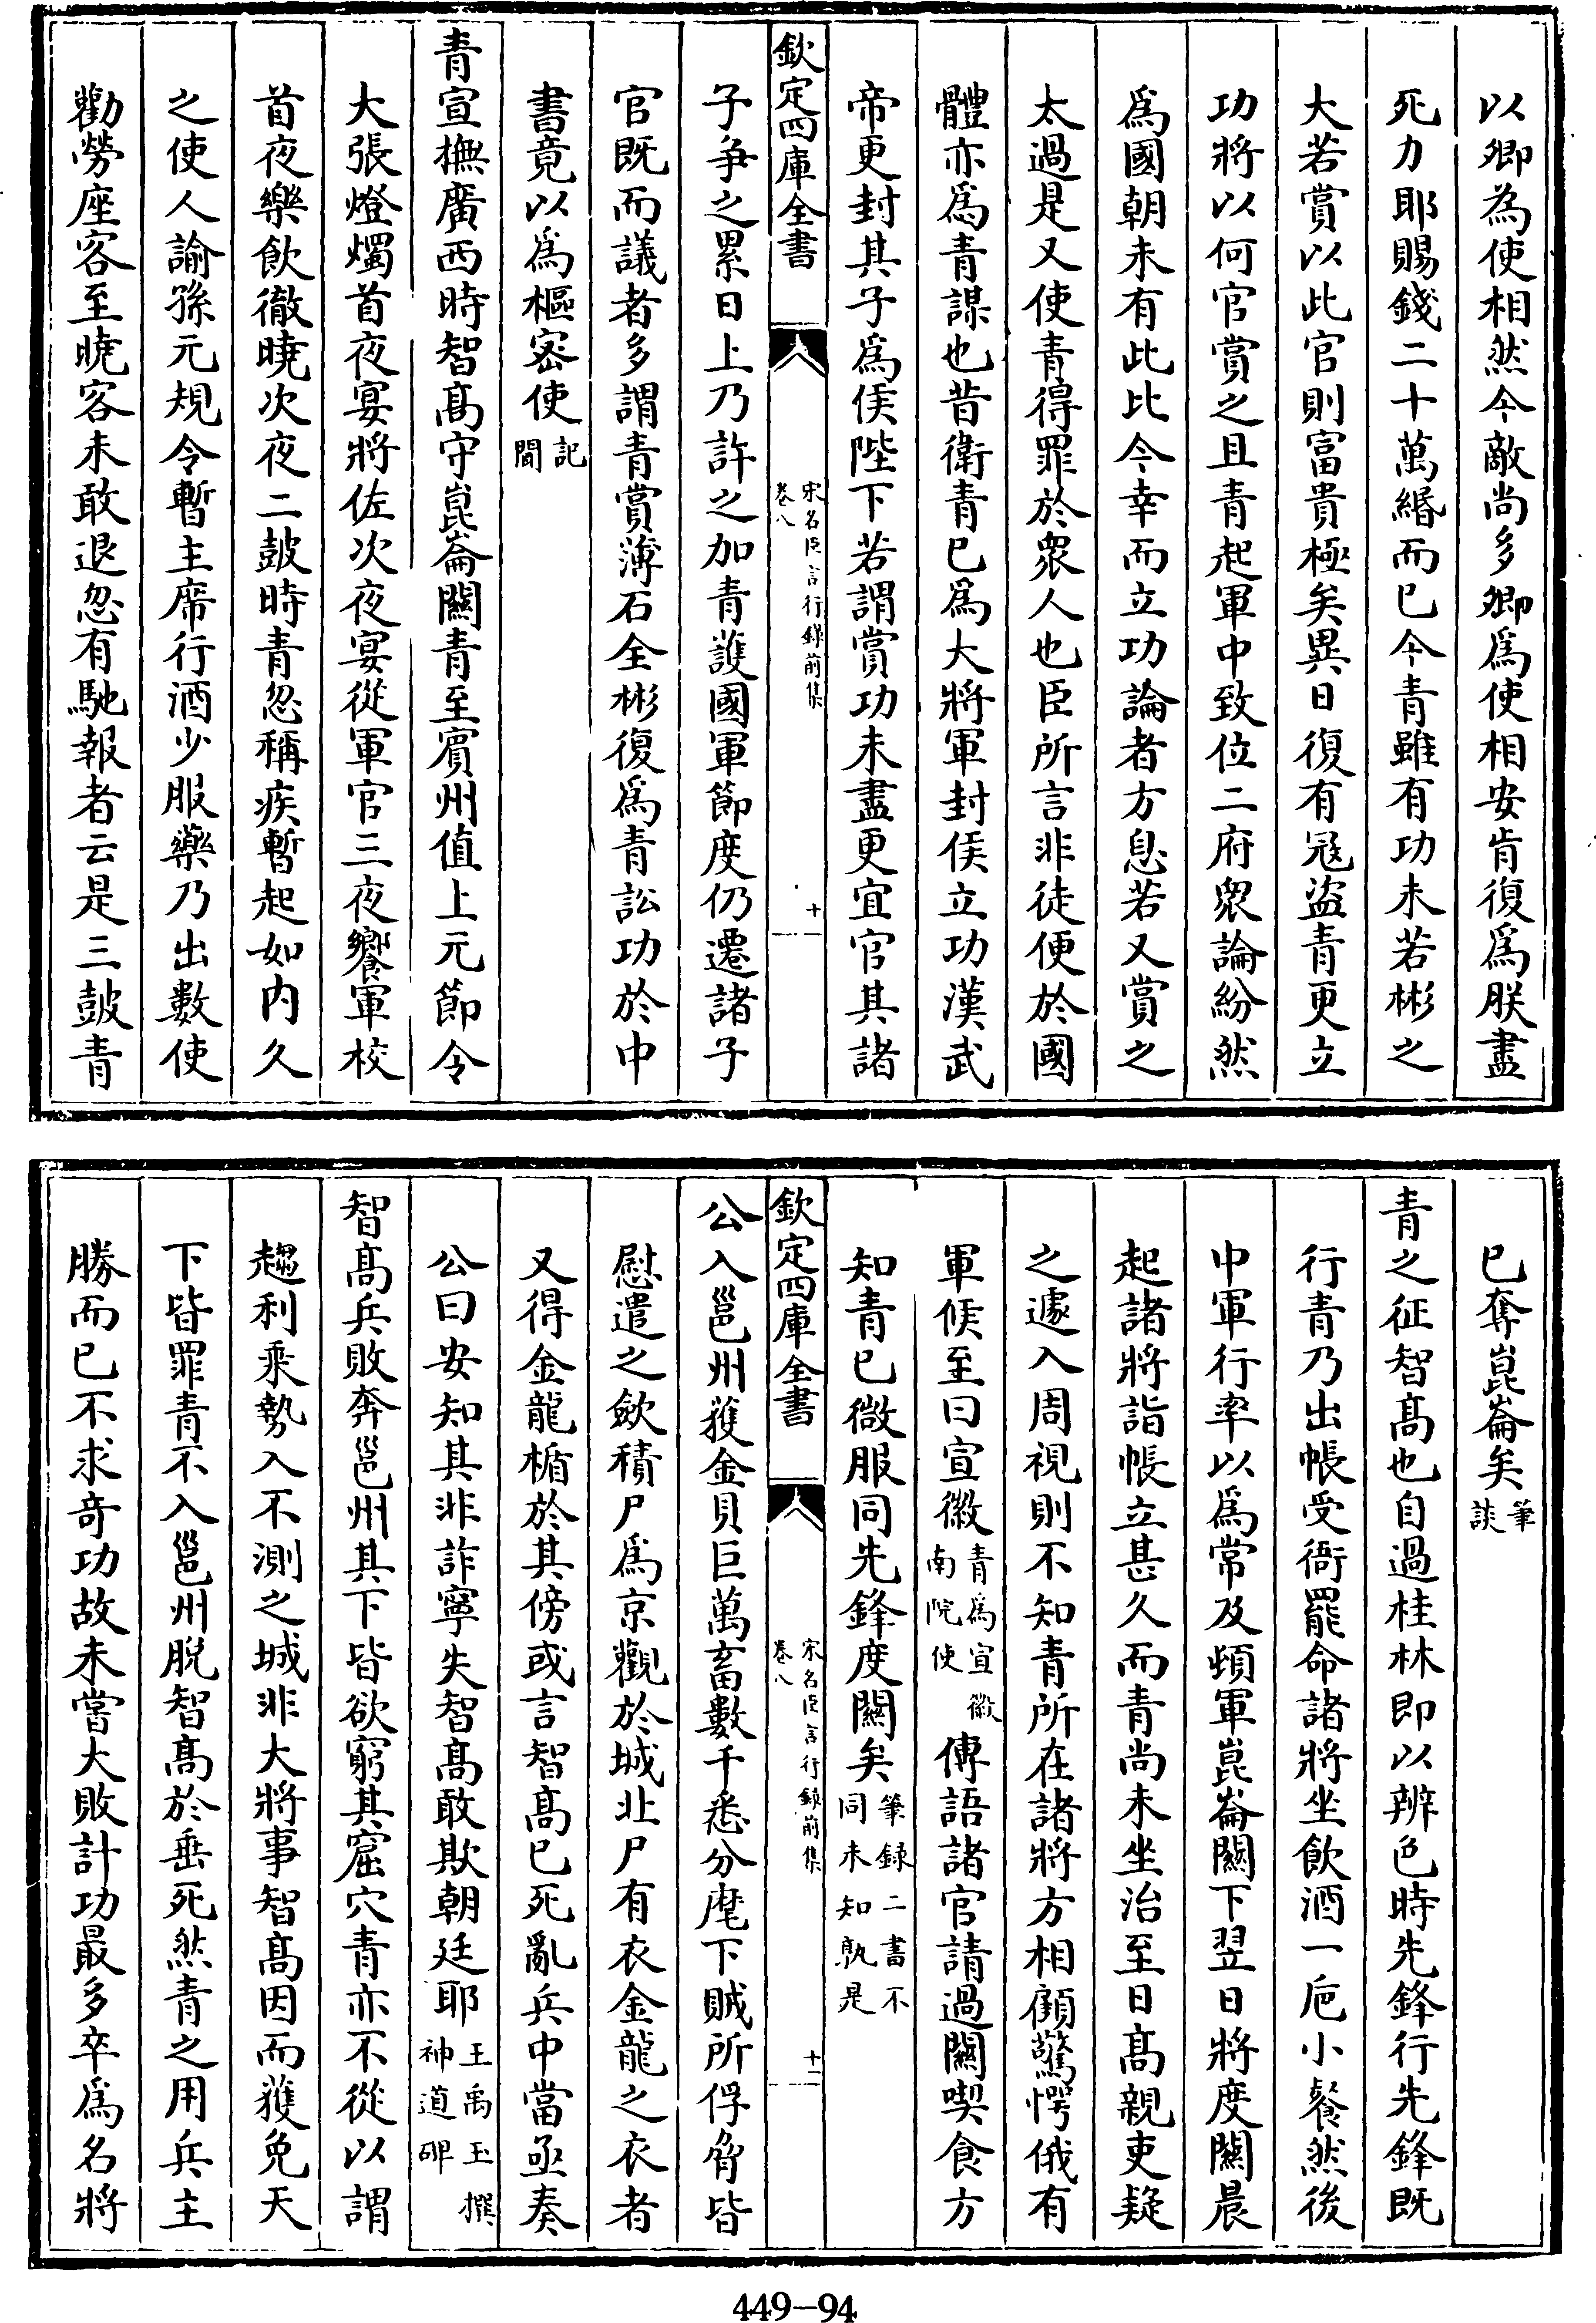 以卿為使相然今敵尚多卿爲使相安肯復爲朕盡
死力耶賜錢二十萬緡而已今青雖有功未若彬之
大若賞以此官則富貴極矣異日復有冦盜青更立
功將以何官賞之且青起軍中致位二府衆論紛然
爲國朝未有此比今幸而立功論者方息若又賞之
太過是又使青得罪於衆人也臣所言非徒便於國
體亦爲青謀也昔衛青已爲大將軍封侯立功漢武
帝更封其子爲侯陛下若謂賞功未盡更宜官其諸
欽定四庫全書
宋名臣言行録前集
卷八
十
子争之累日上乃許之加青護國軍節度仍遷諸子
官既而議者多謂青賞薄石全彬復爲青訟功於中
書竟以爲樞宻使記聞
青宣撫廣西時智髙守崑崙關青至賓州值上元節令
大張燈燭首夜宴將佐次夜宴從軍官三夜饗軍校
首夜樂飲徹曉次夜二鼓時青忽稱疾暫起如内久
之使人諭孫元規令暫主席行酒少服藥乃出數使
勸勞座客至曉客未敢退忽有馳報者云是三鼓青
已奪崑崙矣筆談
青之征智髙也自過桂林即以辨色時先鋒行先鋒既
行青乃出帳受衙罷命諸將坐飲酒一巵小餐然後
中軍行率以爲常及頓軍崑崙關下翌日將度關晨
起諸將詣帳立甚久而青尚未坐治至日髙親吏疑
之遽入周視則不知青所在諸將方相顧驚愕俄有
軍候至曰宣徽青爲宣徽南院使傳語諸官請過關喫食方
知青已微服同先鋒度關矣筆録二書不同未知孰是
欽定四庫全書
宋名臣言行録前集
卷八
十一
公入邕州獲金貝巨萬畜數千悉分麾下賊所俘脅皆
慰遣之歛積尸爲京觀於城北尸有衣金龍之衣者
又得金龍楯於其傍或言智髙已死亂兵中當亟奏
公曰安知其非詐寧失智髙敢欺朝廷耶王禹玉撰神道碑
智髙兵敗奔邕州其下皆欲窮其窟穴青亦不從以謂
趨利乘勢入不測之城非大將事智髙因而獲免天
下皆罪青不入邕州脫智髙於垂死然青之用兵主
勝而已不求奇功故未嘗大敗計功最多卒爲名將
449-94